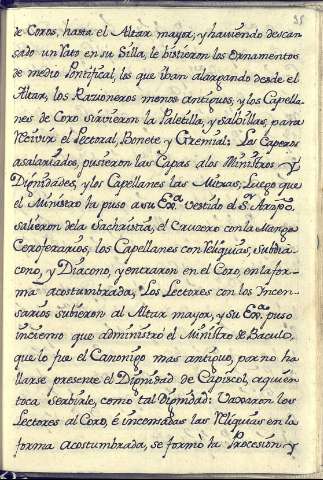 38
de Coros, hasta el Altar mayor, y haviendo descan
sado un rato en su Silla, le bistieron los Ornamentos
de medio Pontifical, los que iban alargando desde el
Altar, los Razioneros menos antiguos, y los Capella
nes de Coro sirvieron la Paletilla, y salvillas, para
recivir el Pectoral, Bonete y Gremial: Los Caperos
asalariados, pusieron las Capas a los Ministros y
Dignidades, y los Capellanes las Mitras; Luego que
el Ministro ha puso a su Exª. vestido el Sr. Arzpo.
salieron de la Sachristia, el Cruzero con la Manga
Ceroferarios, los Capellanes con reliquias, Subdia
cono, y Diacono, y entraron en el Coro, en la for-
ma acostumbrada, Los Lectores con los Yncen-
sarios subieron al Altar mayor, y su Exª. puso
incienso que administró el Ministro de Baculo,
que lo fue el Canonigo mas antiguo, por no ha
llarse presente el Dignidad de Capiscol, a quien
toca serbirle, como tal Dignidad: Vaxaron los
Lectores al Coro, é incensadas las reliquias en la
forma acostumbrada, se formó la Procesion, y